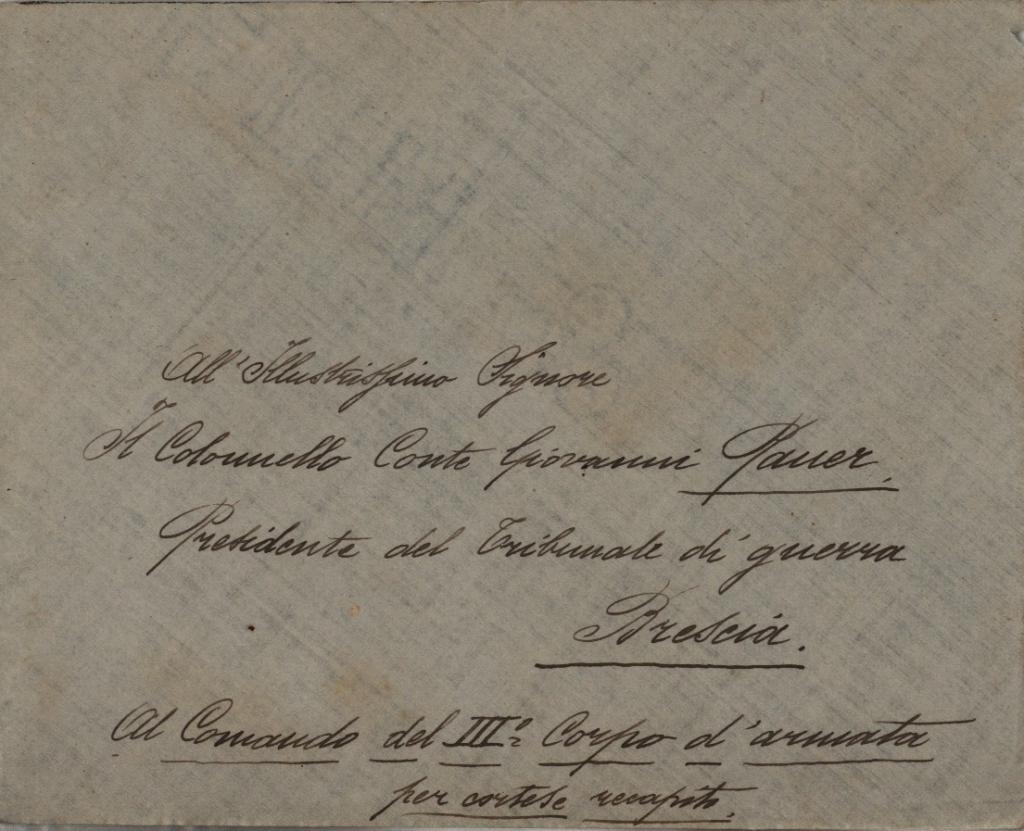 All'Illustrissimo Signore
Il Colonnello Conte Giovanni Pauer.
Presidente del Tribunale di guerra
Brescia.
Al Comando del III° Corpo d'armata
per cortese recapito.